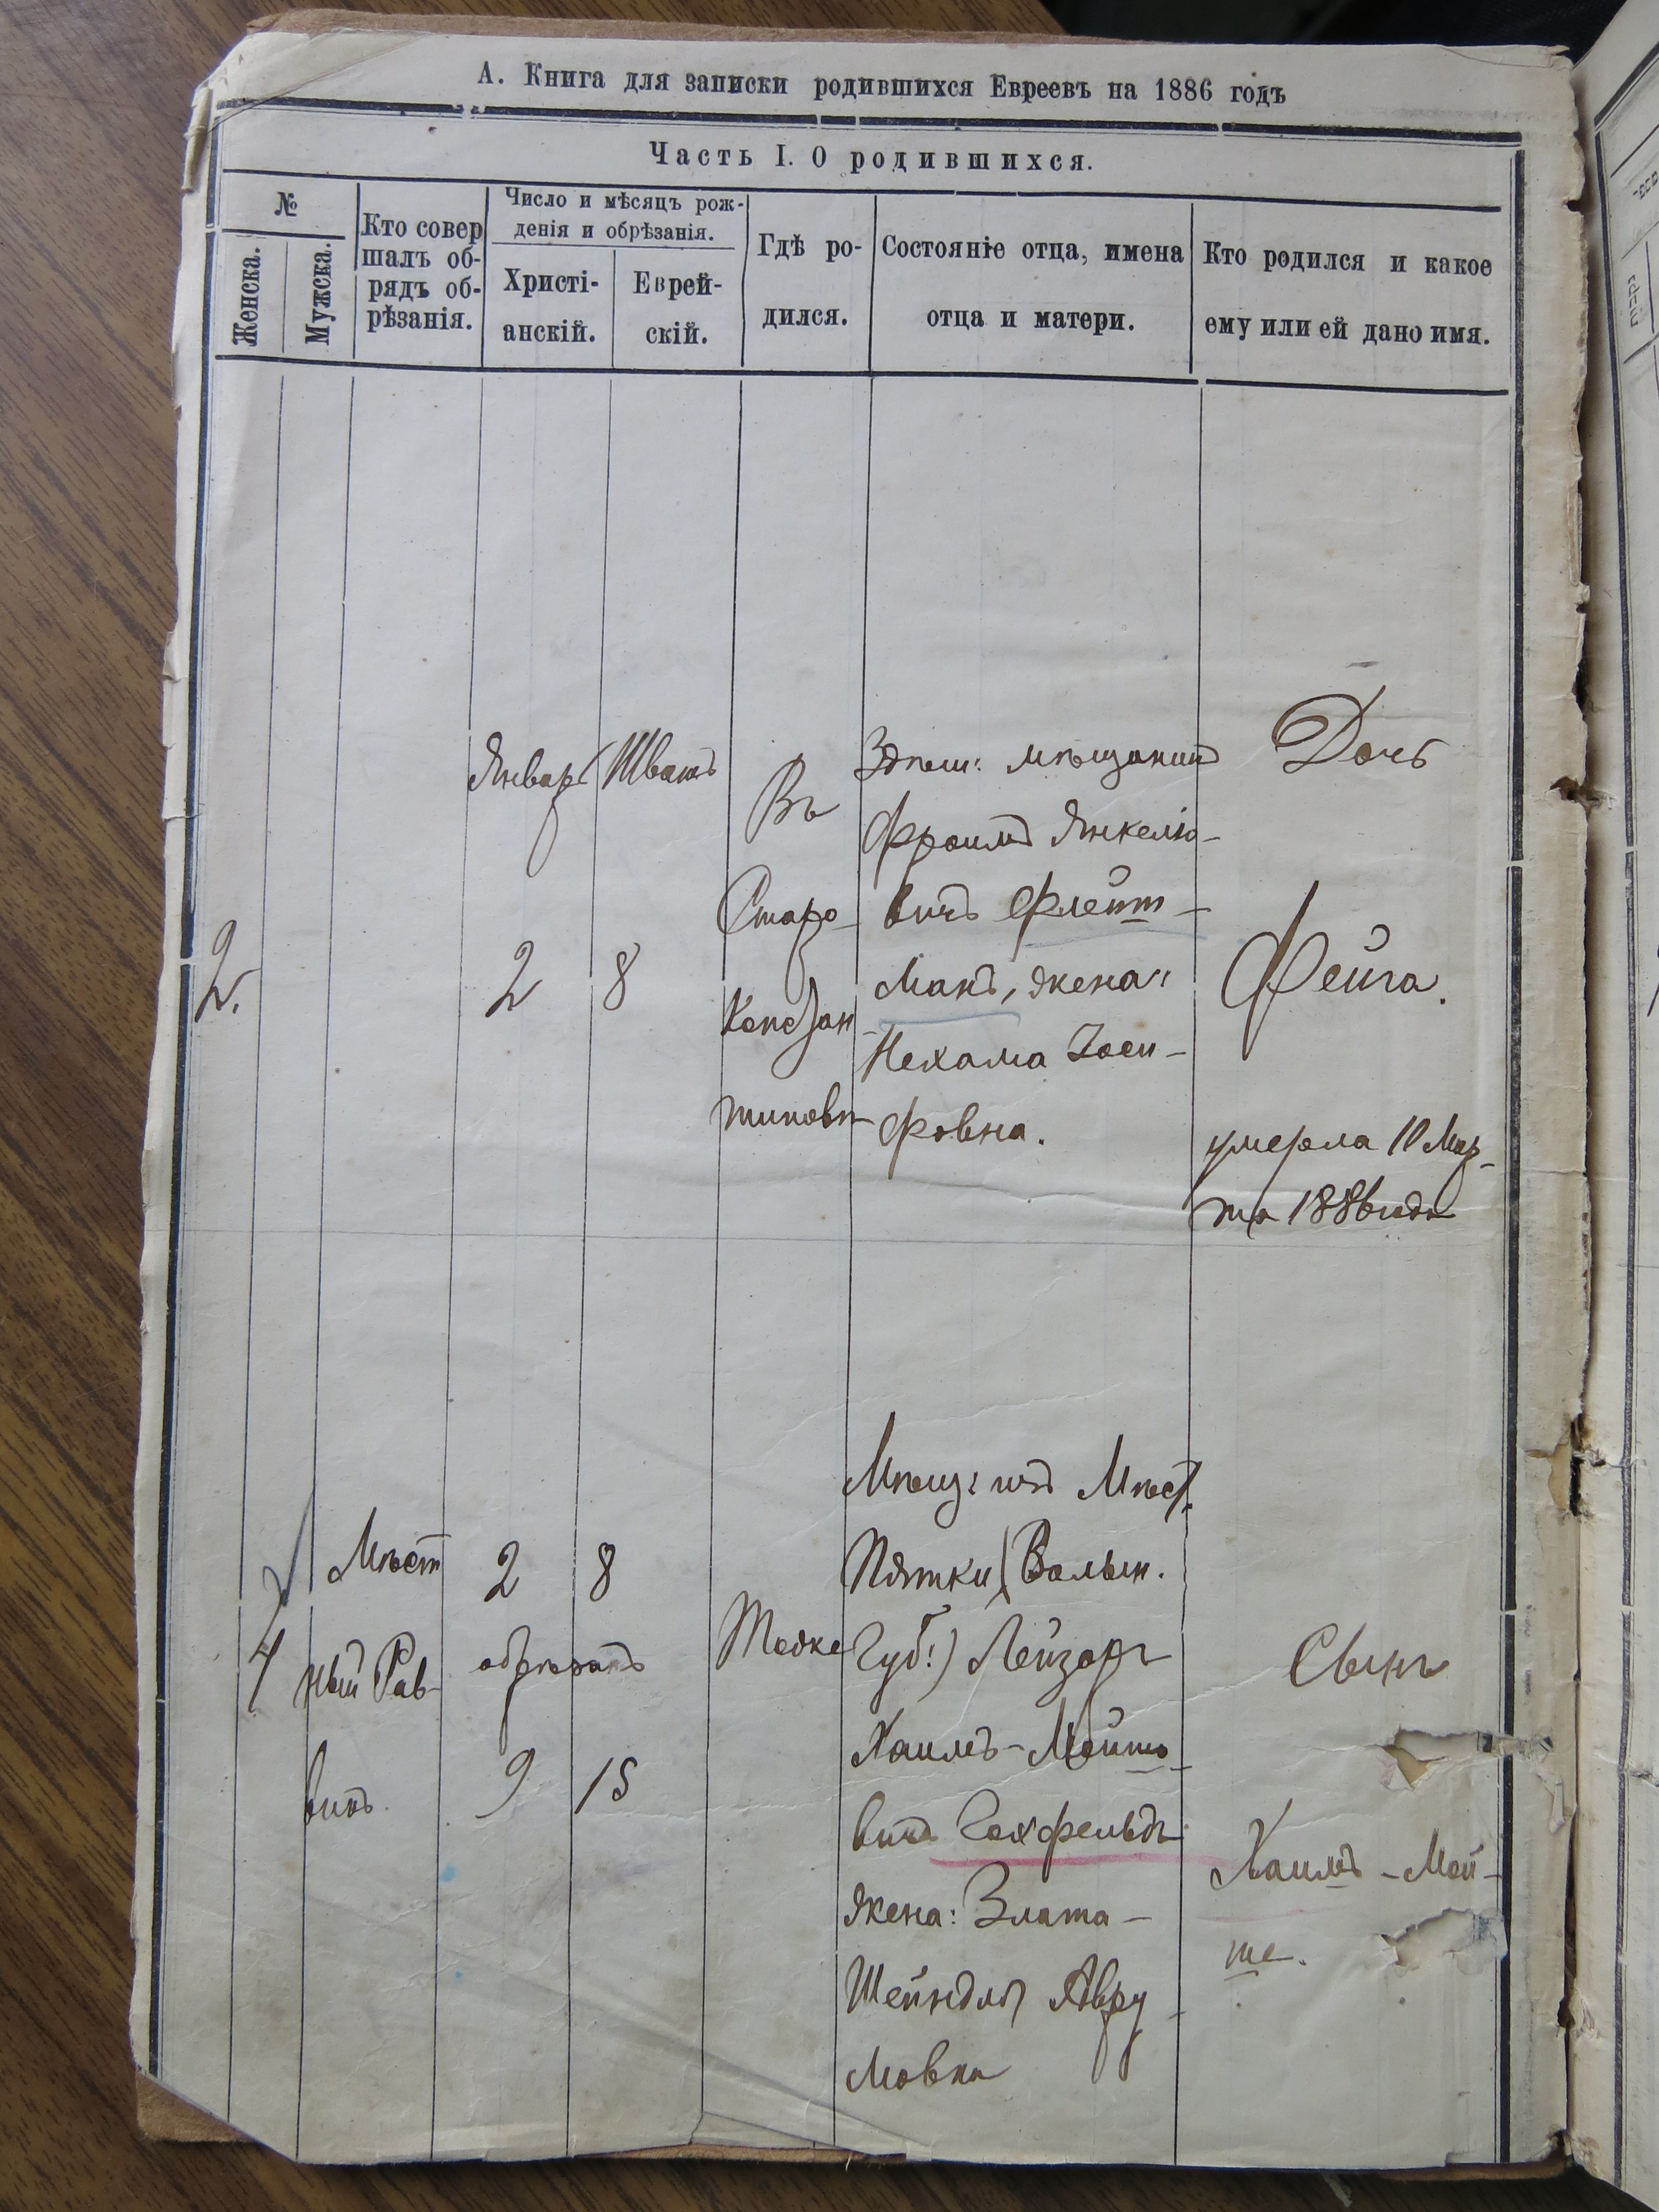 А. Книга для записки родившихся Евреевъ на 1886 годъ
Часть I. О родившихся.
№
Женска.
Мужска.
Кто совер
шалъ об-
рядъ об-
рѣзанія.
Число и мѣсяцъ рож-
денія и обрѣзанія.
Христі-
анскій.
Еврей-
скій.
Гдѣ ро-
дился.
Состояніе отца, имена
отца и матери.
Кто родился и какое
ему или ей дано имя.
2.
Январь
2
Шватъ
8
Въ
Старо-
Констан-
тиновѣ
Здѣш: мѣщанинъ
Фроимъ Янкелио-
вичъ Флейт-
манъ, жена:
Нехама Іоси-
фовна.
Дочь
Фейга.
умерла 10 Мар-
та 1886 года
4
Мѣст
ный Рав-
винъ
2
8
обрѣзанъ
9
15
Тоже
Мѣщ: изъ Мѣст.
Пятки (Волын.
Губ:) Лейзоръ
Хаимъ-Мойшо-
вичъ Гохфельдъ
жена: Злата-
Шейндля Авру-
мовна
Сынъ
Хаимъ-Мой-
ше.